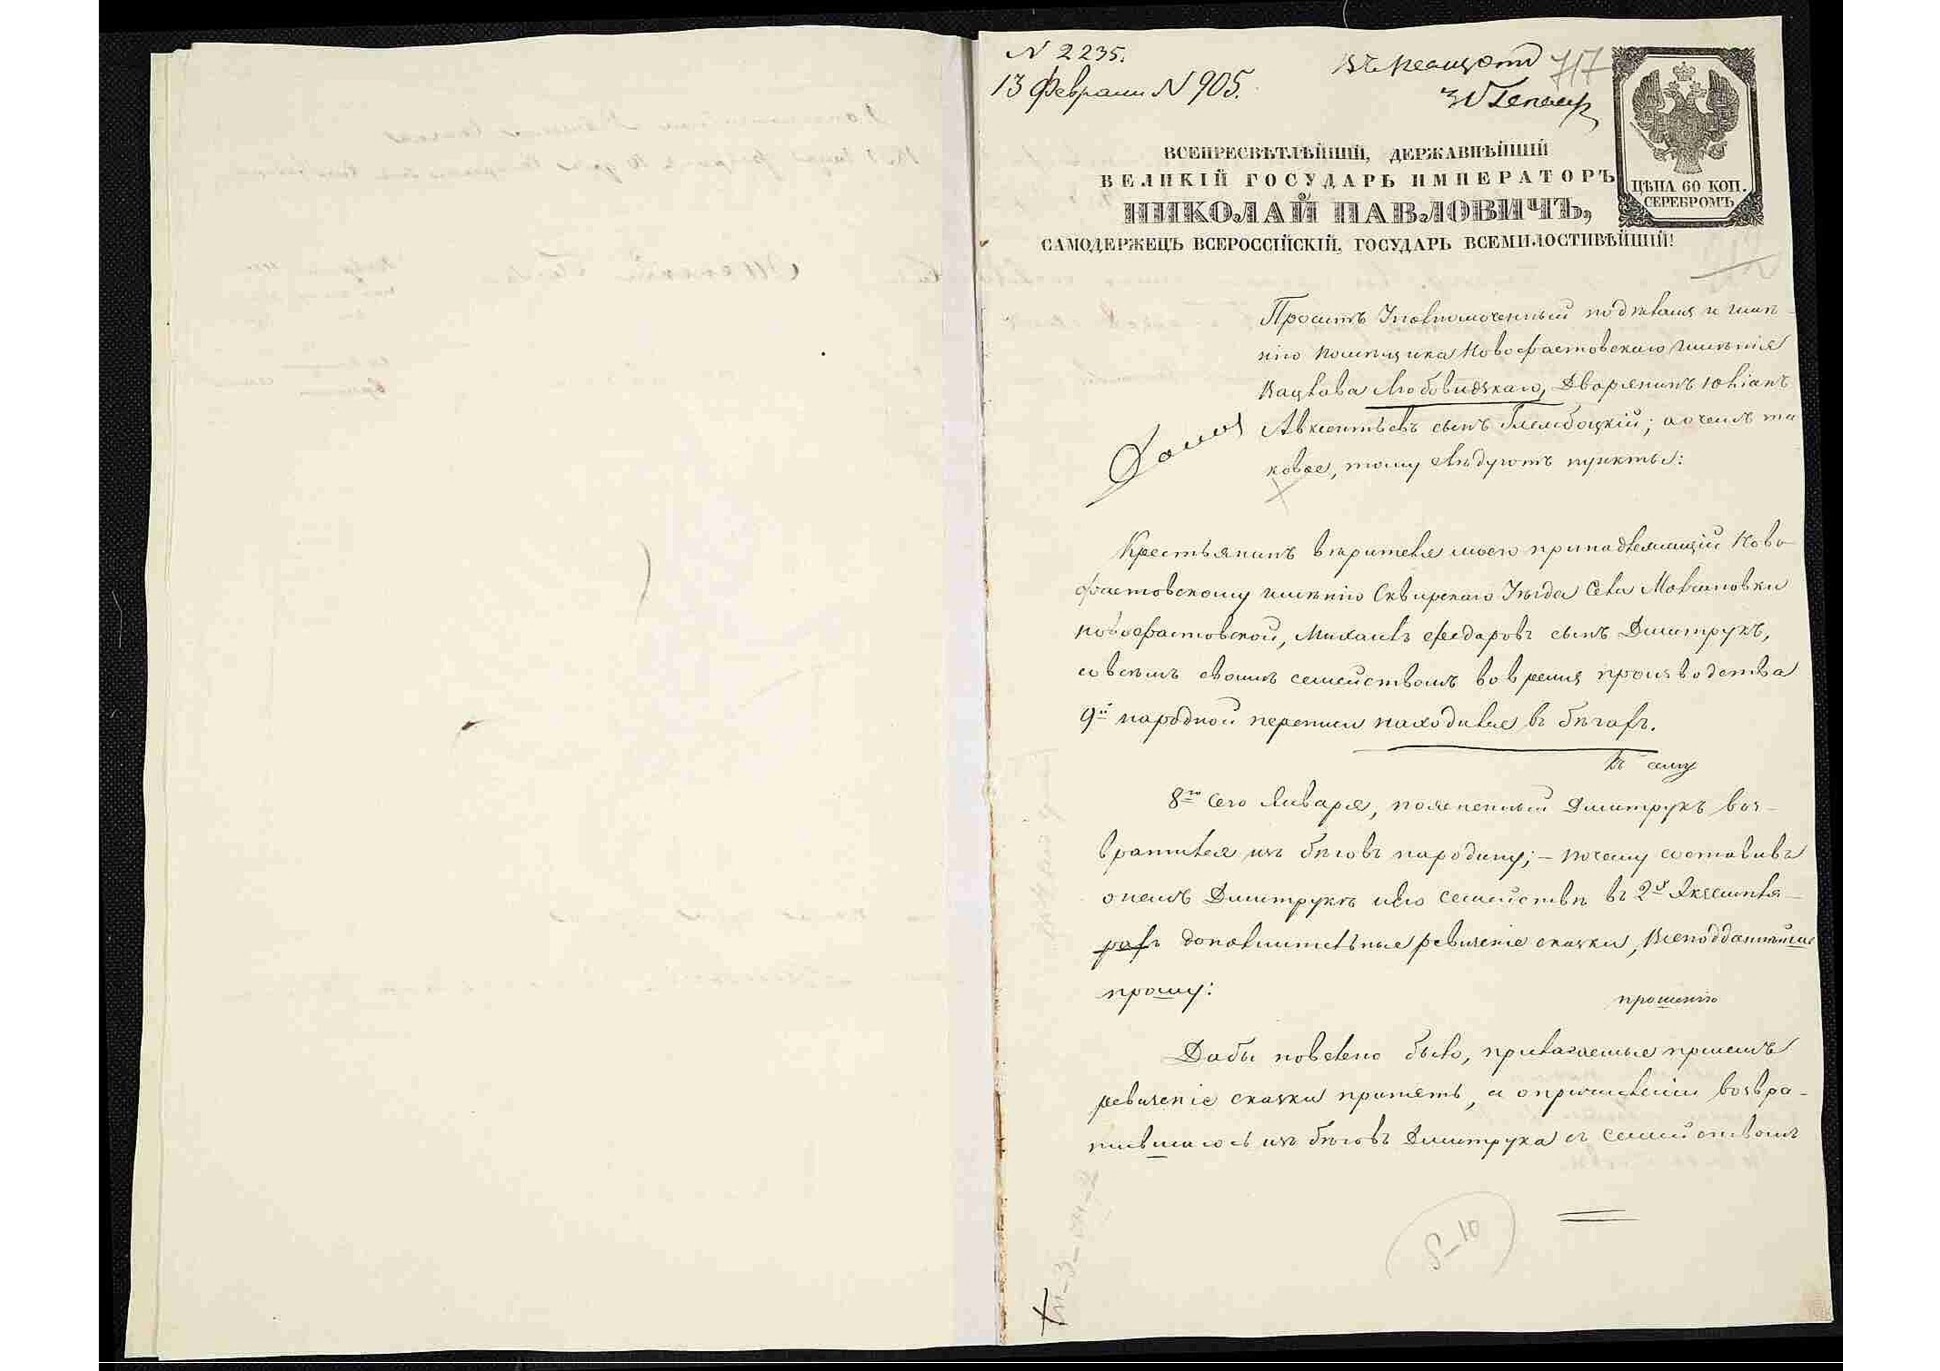 N 2235.
13 Февраля N 905.
717
ЦѢНА 60 КОП.
СЕРЕБРОМЪ
ВСЕПРЕСВѢТЛѢЙШІЙ, ДЕРЖАВНѢЙШІЙ
ВЕЛИКІЙ ГОСУДАРЬ ИМПЕРАТОРЪ
НИКОЛАЙ ПАВЛОВИЧЪ,
САМОДЕРЖЕЦЪ ВСЕРОССІЙСКІЙ, ГОСУДАРЬ ВСЕМИЛОСТИВѢЙШІЙ!
Проситъ Уполномоченный по дѣламъ и имѣ-
нію помѣщика Новофастовскаго имѣнія
Вацлава Любовидзкаго, Дворянинъ Юліанъ
Авксентьевъ сынъ Глембоцкій; а о чемъ та
ковое, тому слѣдуютъ пункты:
Крестьянинъ вѣрителя моего принадлежащій Ново-
фастовскому имѣнію Сквирскаго Уѣзда Села Молчановки
новофастовской, Михаилъ Федоровъ сынъ Дмитрукъ,
совсѣмъ своимъ семействомъ вовремя производства
9й народной переписи находился въ бѣгахъ.
8го сего Января, поясненный Дмитрукъ воз-
вратился изъ бѣговъ народину; – почему составивъ
о немъ Дмитрукѣ иего семействѣ въ 2х Экземпля-
рахъ дополнительные ревизскіе сказки, Всеподданнѣйше
прошу:
прошенію
Дабы повелено было, прилагаемые присемъ
ревизскіе сказки принять, и опричисленіи возвра-
тившагось изъ бѣговъ Дмитрука съ семействомъ
8-10